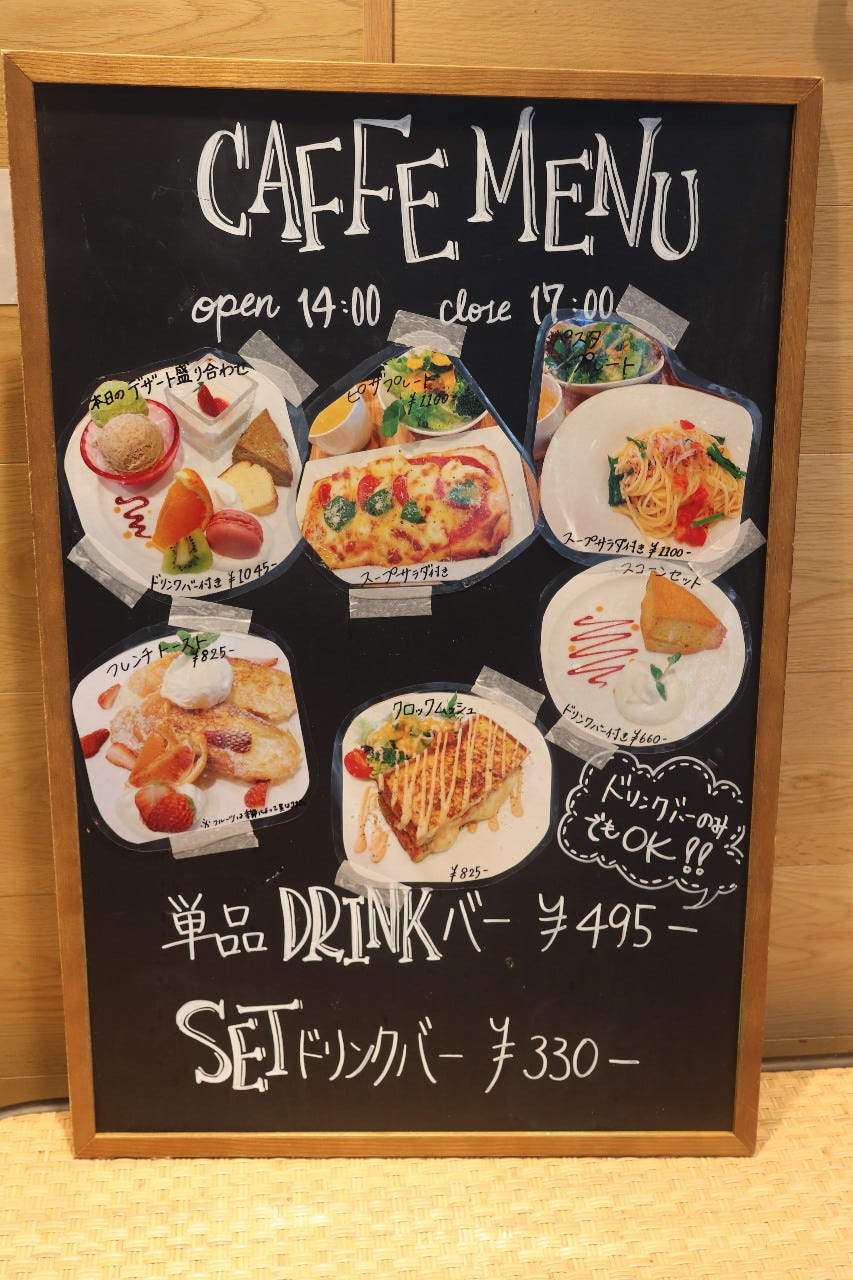 CAFFE MENU
open 14:00 close 17:00
本日のデザート盛り合わせ
ドリンクバー付き ¥1045-
ピザプレート
¥1100-
スープサラダ付き
パスタ
プレート
スープサラダ付き ¥1100-
スコーンセット
ドリンクバー付き ¥660-
フレンチトースト
¥825-
※フルーツは
クロックムッシュ
¥825-
ドリンクバーのみ
でもOK!!
単品 DRINKバー ¥495-
SETドリンクバー ¥330-